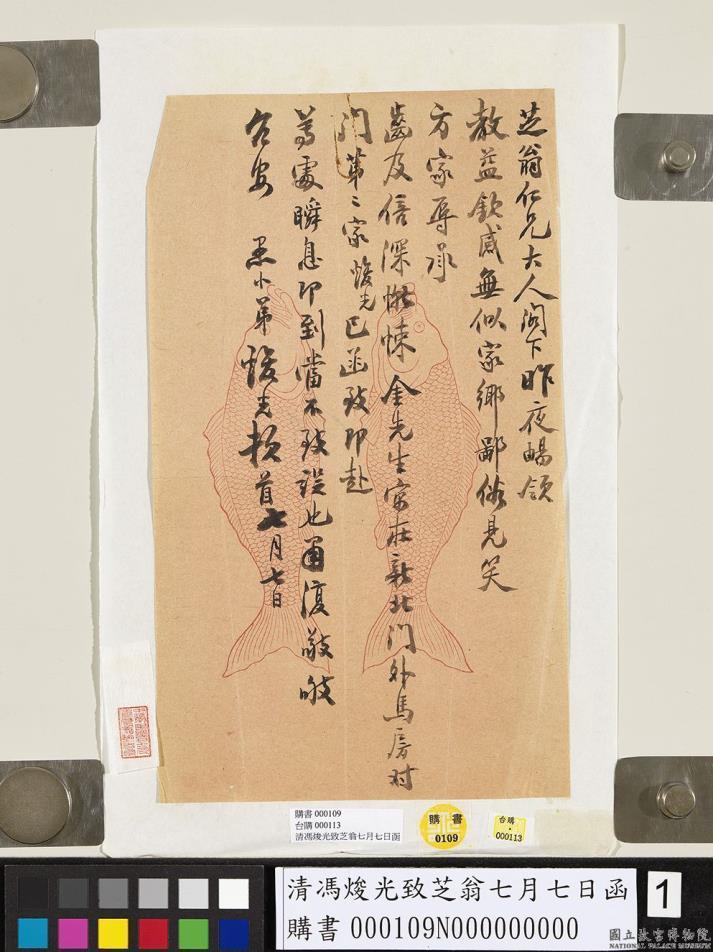 芝翁仁兄大人阁下昨夜暢領
教益欽感無似家鄉鄙俗見笑
方家辱承
齒及倍深慚悚金先生寓在新北门外馬房对
门第二家焌光已函致即赴
尊處瞬息即到當不致誤也甫復敬
台安 愚小弟焌光頓首七月七日
購書 000109
台購 000113
清馮焌光致芝翁七月七日函
購書
0109
台購
000113
清馮焌光致芝翁七月七日函
購書 000109N000000000
1
國立故宮博物院
NATIONAL PALACE MUSEUM